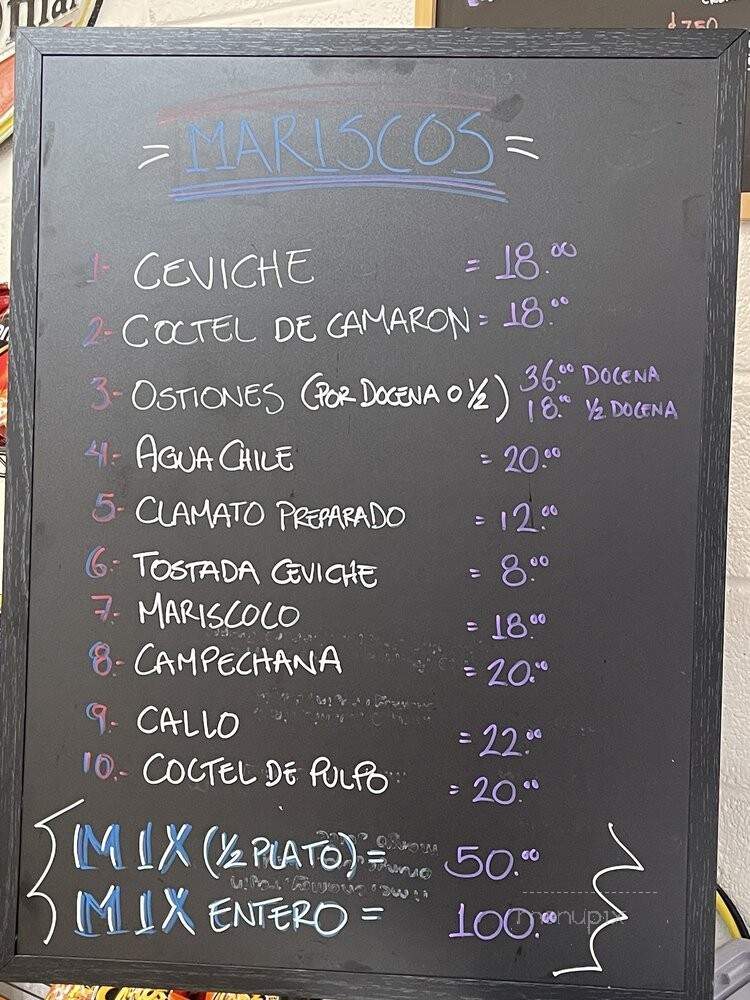 $7.50
= MARISCOS =
1- CEVICHE = 18.00
2- COCTEL DE CAMARON = 18.00
3- OSTIONES (POR DOCENA O 1/2) 36.00 DOCENA
18.00 1/2 DOCENA
4- AGUA CHILE = 20.00
5- CLAMATO PREPARADO = 12.00
6.- TOSTADA CEVICHE = 8.00
7.- MARISCOLO = 18.00
8.- CAMPECHANA = 20.00
9.- CALLO = 22.00
10.- COCTEL DE PULPO = 20.00
MIX (1/2 PLATO) = 50.00
MIX ENTERO = 100.00
menupix